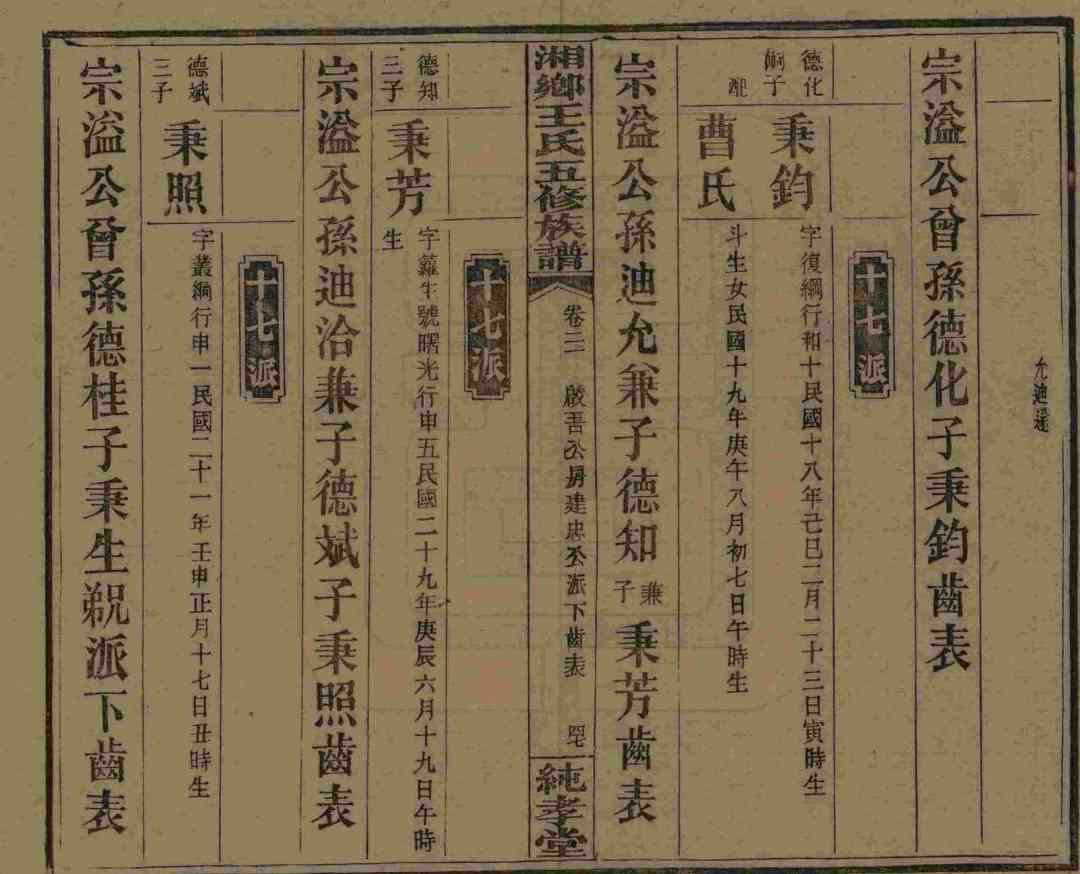 允迪還
宗溢公曾孫德化子秉鈞齒表
十七派
德化
嗣子
秉鈞
字復綱行和十民國十八年己巳二月二十三日寅時生
配
曹氏
斗生女民國十九年庚午八月初七日午時生
宗溢公孫迪允兼子德知兼子秉芳齒表
湘鄉王氏五修族譜
卷三
啟吾公房建忠公派下齒表
純孝堂
十七派
德知
三子
秉芳
字蘿生號曙光行申五民國二十九年庚辰六月十九日午時
生
宗溢公孫迪洽兼子德斌子秉照齒表
十七派
德斌
三子
秉照
字叢綱行申一民國二十一年壬申正月十七日丑時生
宗溢公曾孫德桂子秉生鯢派下齒表